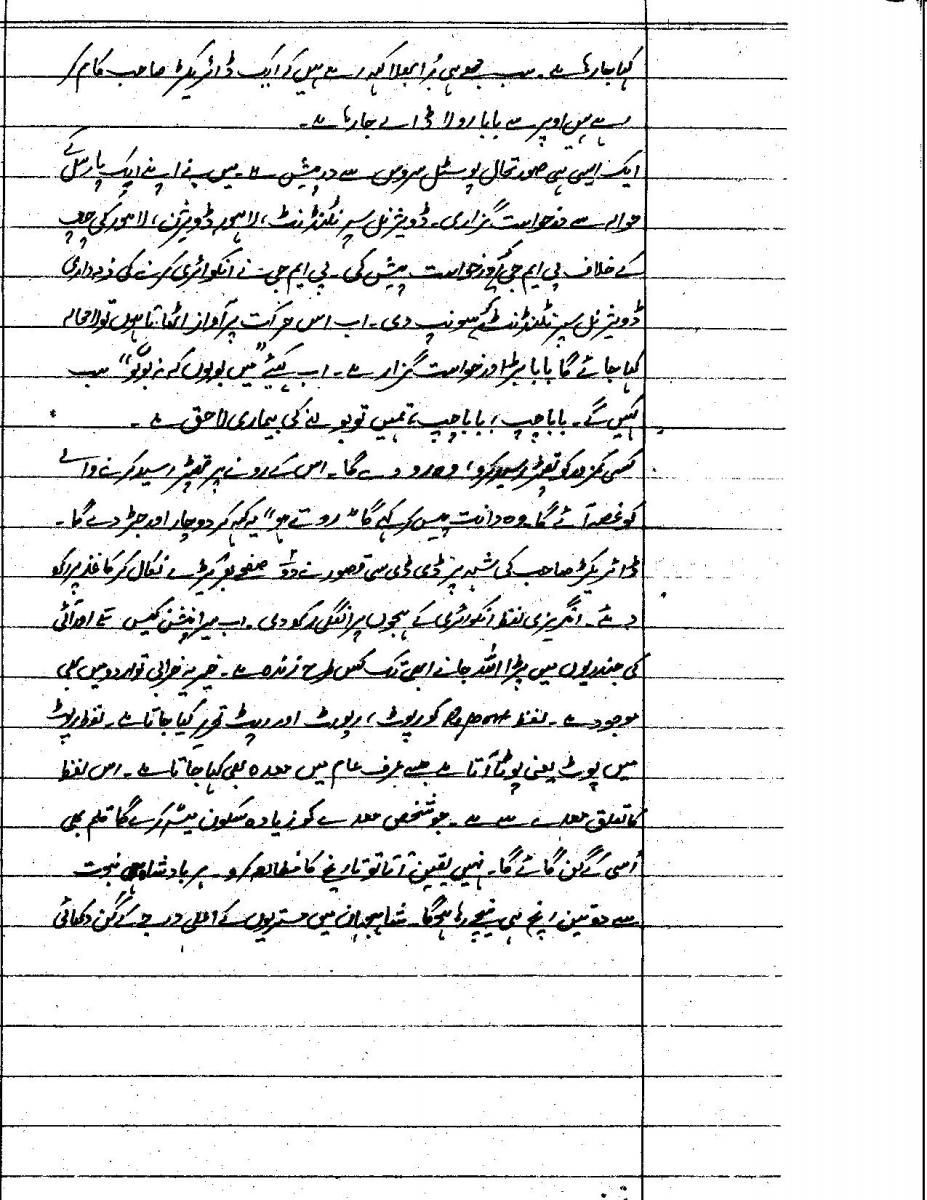 کہا جا رہا ہے۔ سب مجھے ہی بُرا بھلا کہہ رہے ہیں کہ ایک ڈائریکٹر صاحب کام کر
رہے ہیں اوپر سے بابا رولا ڈالے جا رہا ہے۔
ایک ایسی ہی صورتحال پوسٹل سروس سے درپیش ہے۔ میں نے اپنے ایک پارسل کے
حوالہ سے درخواست گزاری۔ ڈویژنل سپرنٹنڈنٹ، لاہور ڈویژن، لاہور کی چپ
کے خلاف پی ایم جی کو درخواست پیش کی۔ پی ایم جی نے انکوائری کرنے کی ذمہ داری
ڈویژنل سپرنٹنڈنٹ کو سونپ دی۔ اب اس حرکت پر آواز اٹھاتا ہوں تو لامحالہ
کہا جائے گا بابا بڑا درخواست گزار ہے۔ اب کہیئے "میں بولوں کہ نہ بولوں" سب
کہیں گے۔ بابا چپ، بابا چپ، تمہیں تو بولنے کی بیماری لاحق ہے۔
کسی کمزور کو تھپڑ رسید کرو، وہ رو دے گا۔ اس کے رونے پر تھپڑ رسید کرنے والے
کو غصہ آئے گا۔ وہ دانت پیس کر کہے گا "روتے ہو" یہ کہہ کر دو چار اور جڑ دے گا۔
ڈائریکٹر صاحب کی شہ پر ڈی ڈی سی قصور نے دو صفحے نکال کر کاغذ پر رکھ
دئے۔ انگریزی لفظ انکوائری کے ہجوں پر انگلی رکھ دی۔ اب میرا پنشن کیس
کی جندریوں میں پڑا اللہ جانے ابھی تک کس طرح زندہ ہے۔ خیر یہ خرابی تو اردو میں بھی
موجود ہے۔ لفظ Report کو رپوٹ، رپورٹ اور رپٹ تحریر کیا جاتا ہے۔ لفظ رپوٹ
میں پوٹ یعنی پوٹا آتا ہے جسے عرف عام میں معدہ بھی کہا جاتا ہے۔ اس لفظ
کا تعلق معدے سے ہے۔ جو شخص معدے کو زیادہ سکون میسر کرے گا قلم بھی
اُسی کے گن گائے گا۔ نہیں یقین آتا تو تاریخ کا مطالعہ کرو۔ ہر بادشاہ
سے دو تین انچ ہی نیچے رہا ہوگا۔ شاہجہان میں مستریوں کے اعلی درجے کے گن دکھائی